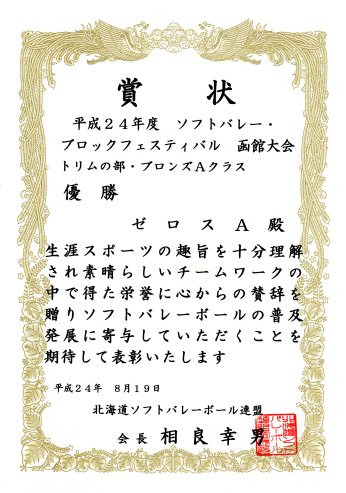 賞状
平成24年度 ソフトバレー・
ブロックフェスティバル 函館大会
トリムの部・ブロンズAクラス
優勝
ゼロスA 殿
生涯スポーツの趣旨を十分理解
され素晴らしいチームワークの
中で得た栄誉に心からの賛辞を
贈りソフトバレーボールの普及
発展に寄与していただくことを
期待して表彰いたします
平成24年 8月19日
北海道ソフトバレーボール連盟
会長 相良幸男